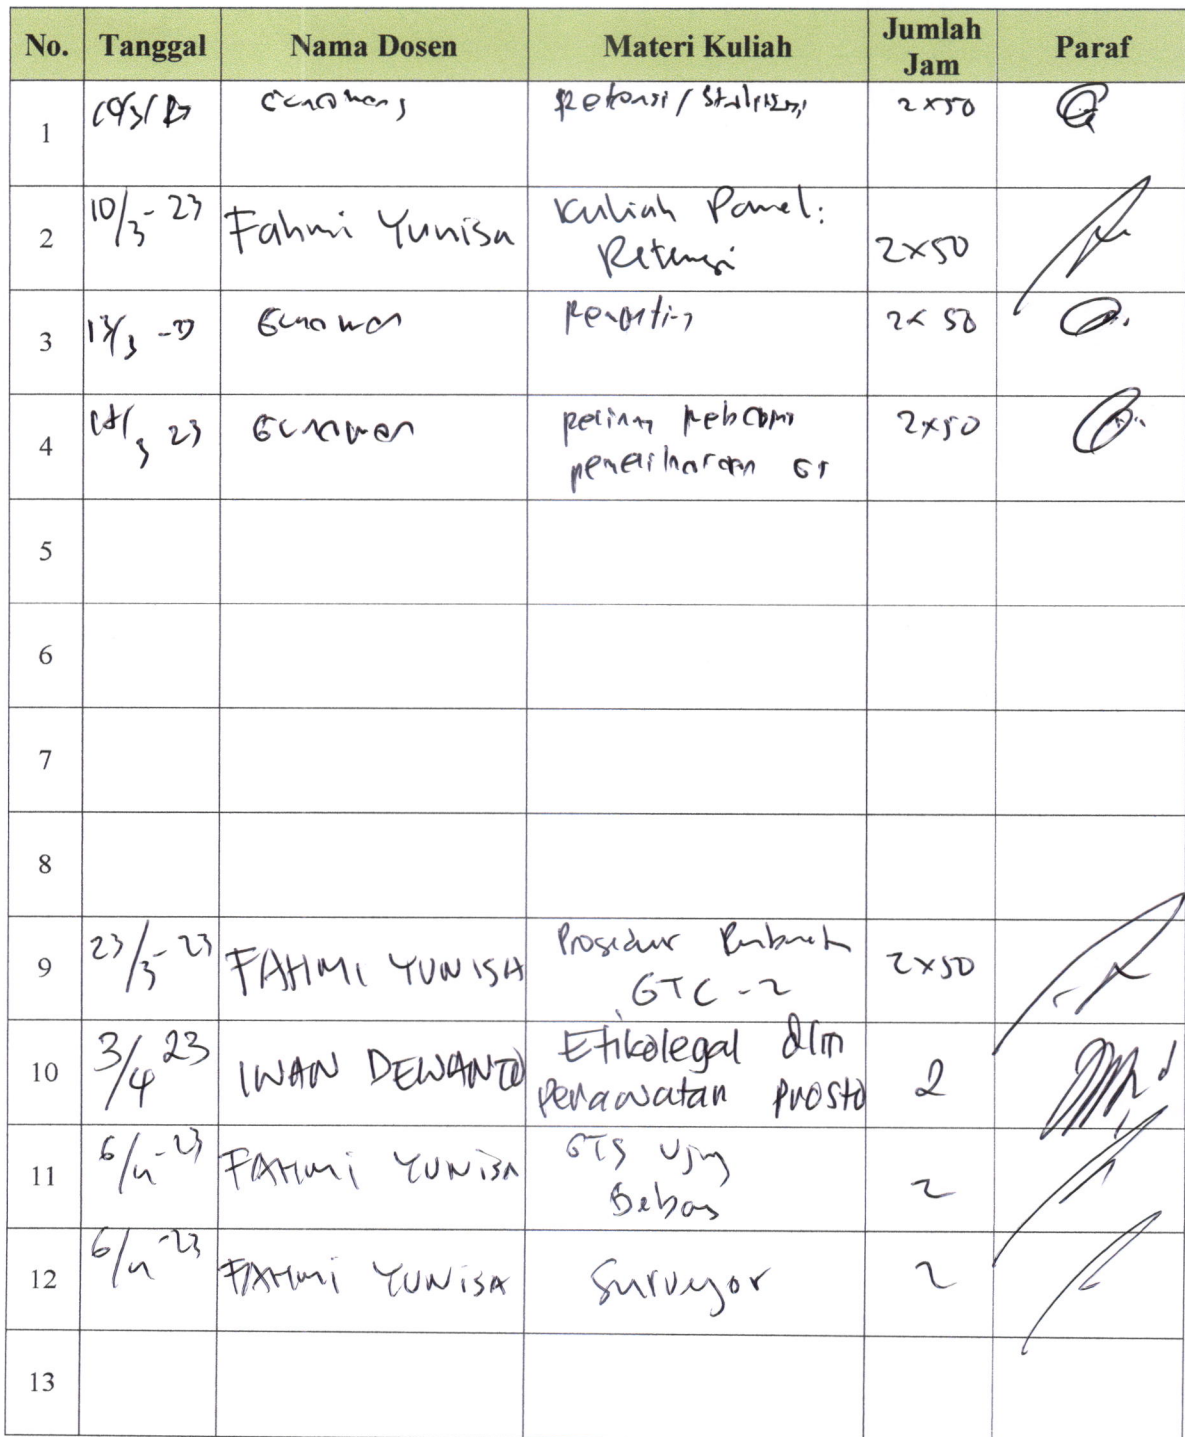 No. Tanggal Nama Dosen Materi Kuliah Jumlah Jam Paraf
1 Retensi / Stabilisasi 2x50
2 10/3-23 Fahmi Yunisa Kuliah Panel: Retensi 2x50
3 13/3 -23 Gunawan 2x50
4 14/3 23 Gunawan pemeliharaan GT 2x50
5
6
7
8
9 23/3-23 FAHMI YUNISA Prosedur GTC-2 2x50
10 3/4 23 IWAN DEWANTO Etikolegal dlm Perawatan Prosto 2
11 6/4-23 FAHMI YUNISA GTS Ujung Bebas 2
12 6/4-23 FAHMI YUNISA Surveyor 2
13